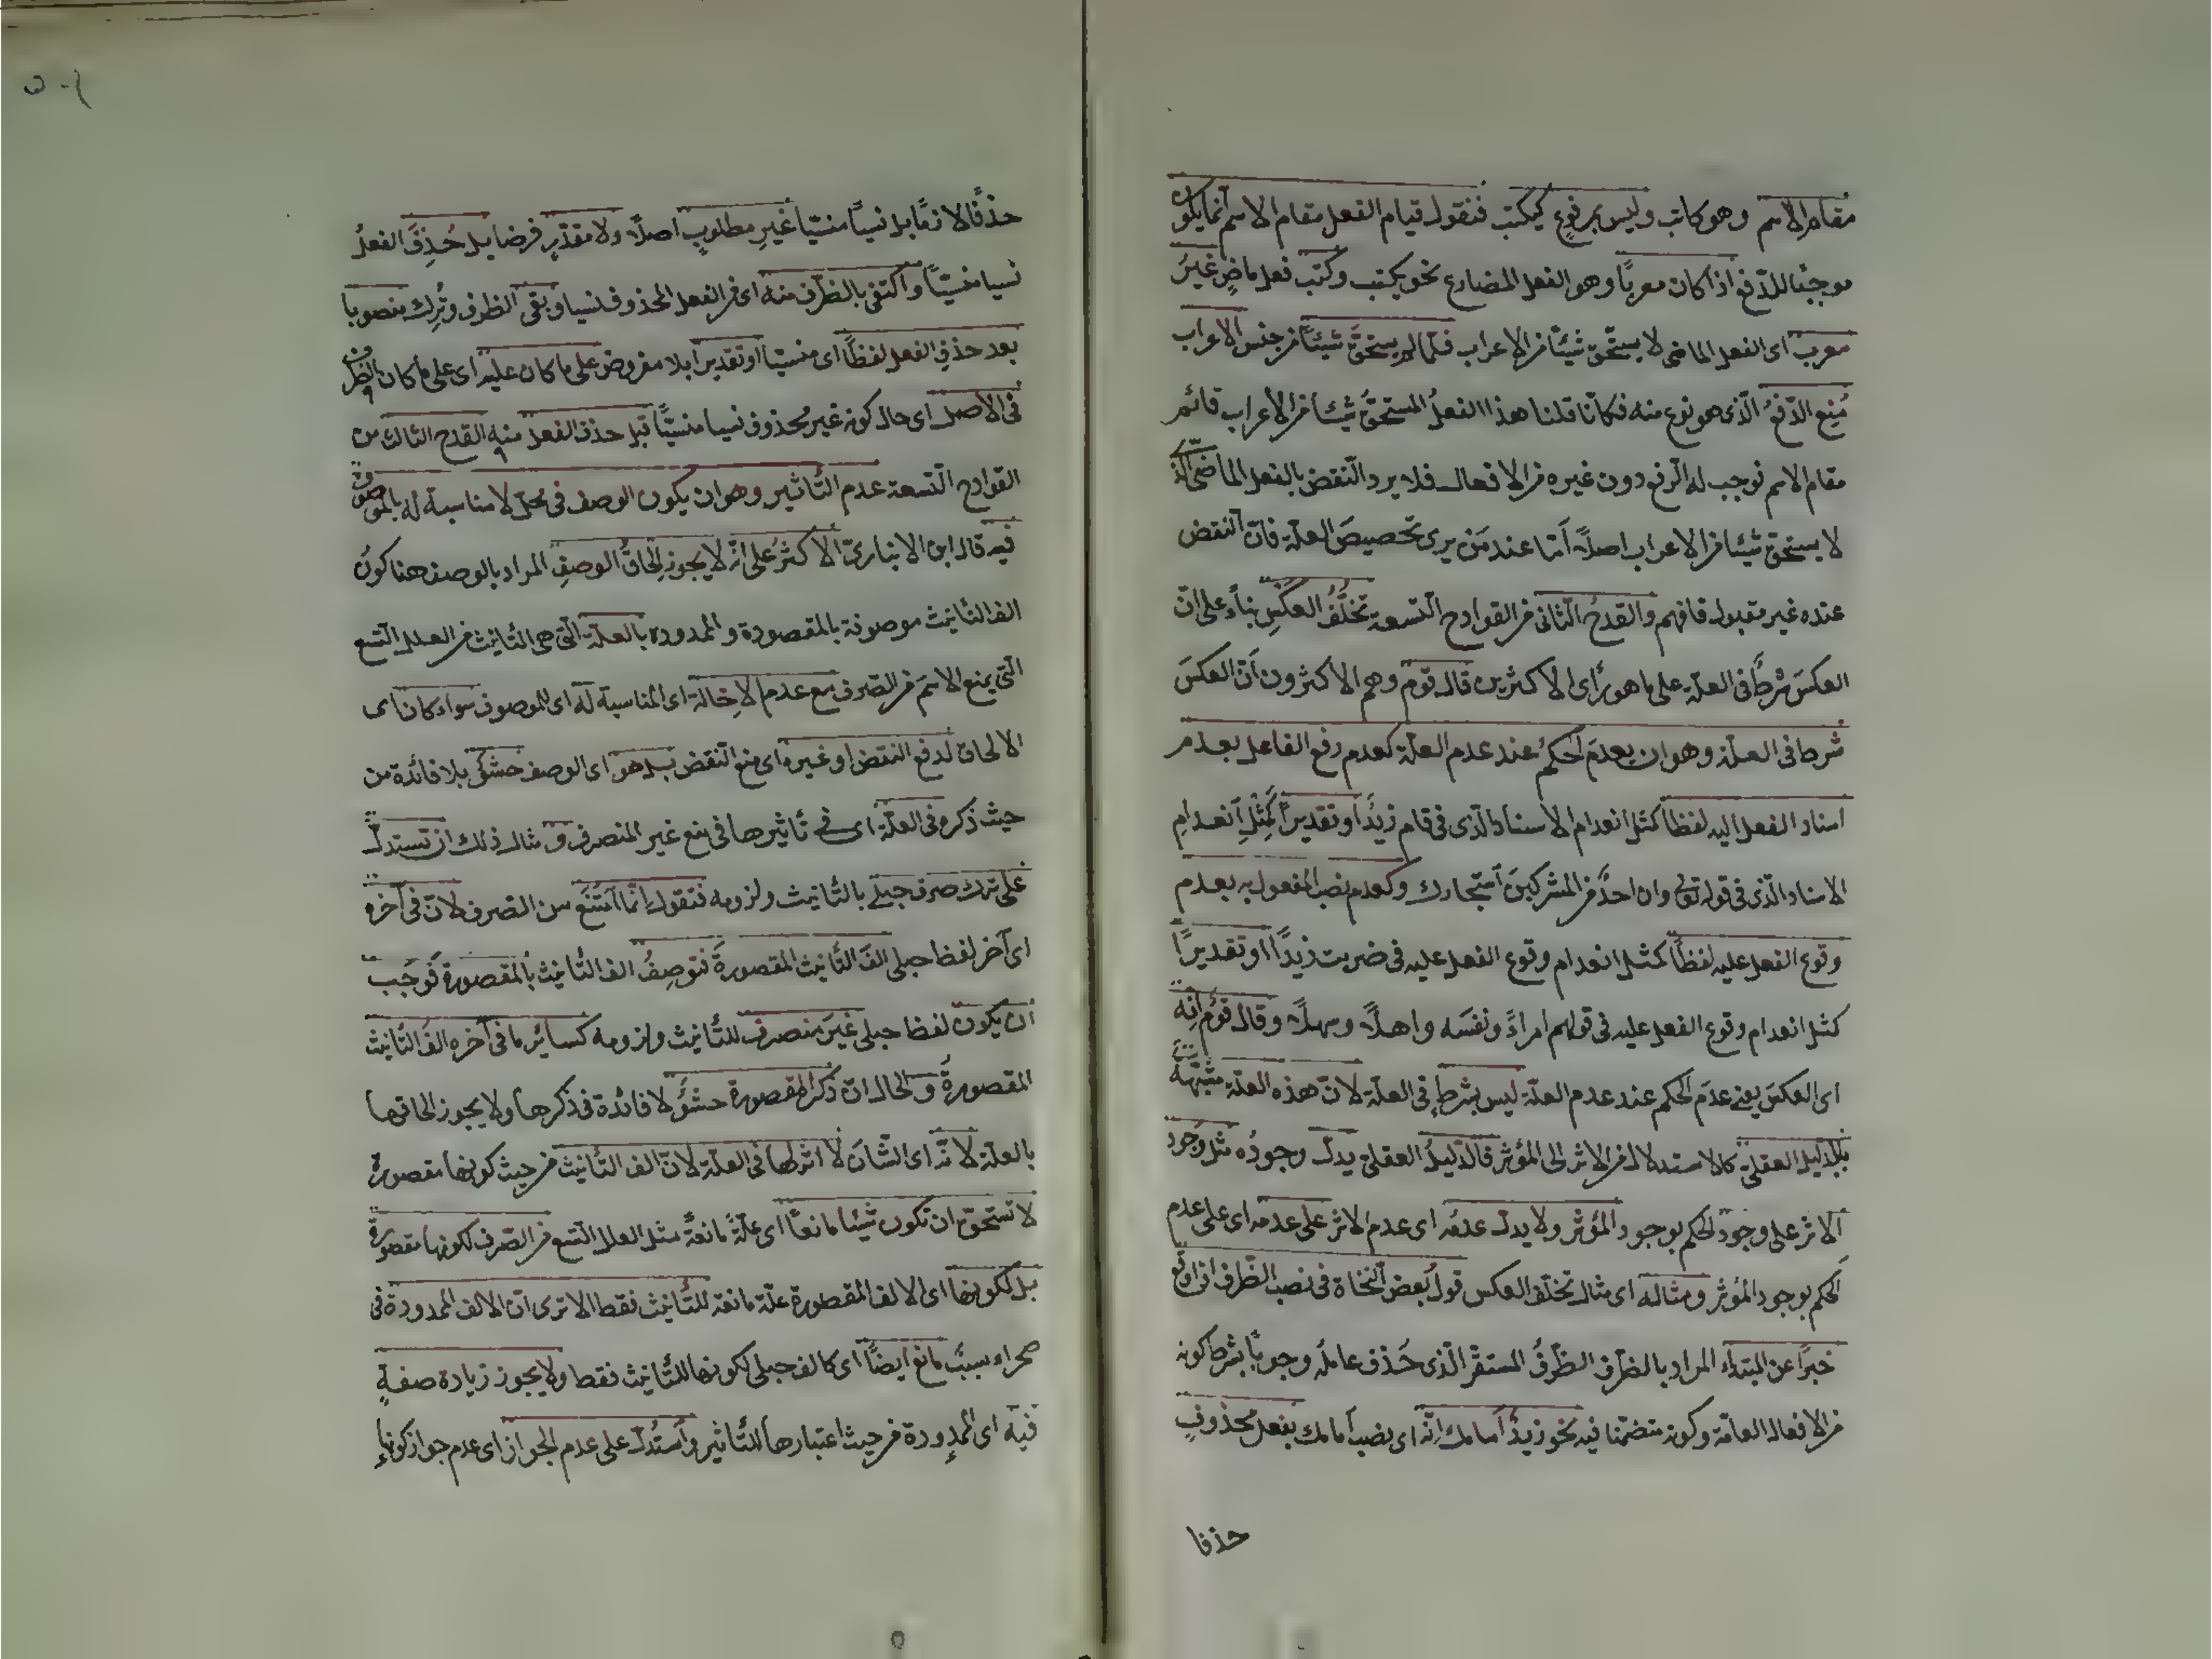 مقام الاسم وهو كاتب وليس برفوع كيكتب فنقول قيام الفعل مقام الاسم انما يكون
موجبًا للرفع اذا كان معربًا وهو الفعل المضارع نحو يكتب وكتب فعل ماضٍ غيرُ
معرب اى الفعل الماضى لا يستحق شيئًا من الاعراب فلمالم يستحقَّ شيئًا من جنس الاعراب
مُنِع الرفعُ الّذى هو نوع منه فكانّا قلنا هذا الفعلُ المستحقُّ شيئا من الاعراب قائم
مقام الاسم فوجب له الرفع دون غيره من الافعال فلا يرد النقض بالفعل الماضى الذى
لا يستحق شيئا من الاعراب اصلًا امّا عند مَن يرى تخصيصَ العلّة فانّ النقض
عنده غير مقبول فافهم والقدحُ الثانى من القوادح التسعة تخلُّفُ العكسِ بناءً على انّ
العكسَ شرطٌ فى العلّة على ما هو رأى الاكثرين قال قوم وهم الاكثرون انّ العكسَ
شرط فى العلّة وهو ان يعدمَ الحكمُ عند عدم العلّة كعدم رفع الفاعل بعدم
اسناد الفعل اليه لفظا كمثل انعدام الاسناد الذى فى قام زيدٌ او تقديرًا كمِثْلِ انعدامِ
الاسناد الّذى فى قوله تع وان احدٌ من المشركينَ استجارك وكعدم نصب المفعول به بعدم
وقوع الفعل عليه لفظًا كمثل انعدام وقوع الفعل عليه فى ضربت زيدًا او تقديرًا
كمثل انعدام وقوع الفعل عليه فى قولهم امراءً ونفسَه واهلًا وسهلًا وقال قومٌ انّه
اى العكسَ يعنى عدَم الحكم عند عدم العلّة ليس بشرطٍ فى العلّة لانّ هذه العلّة مشبّهة
بالدليل العقلىّ كالاستدلال من الاثر الى المؤثر فالدّليلُ العقلىّ يدلّ وجودُه مثل وجود
الاثر على وجود الحكم بوجود المؤثر ولا يدلّ عدمُه اى عدم الاثر على عدمه اى على عدم
الحكم بوجود المؤثر ومثاله اى مثال تخلّف العكس قولُ بعض النحاة فى نصب الظّرف اذا وقع
خبرًا عن المبتداء المراد بالظرف الظرفُ المستقرّ الّذى حُذف عاملُه وجوبًا بشرط كونه
من الافعال العامّة وكونه متضمّنا فيه نحو زيدٌ امامك انّه اى نصب امامك بفعل محذوفٍ
حذفا
حذفًا لازمًا بل نسيًا منسيّا غيرِ مطلوبٍ اصلًا ولا مقدّرٍ فرضا بل حُذِفَ الفعلُ
نسيا منسيًّا واكتفى بالظرف منه اى من الفعل المحذوف نسيا وبقى الظرف وتُرِك منصوبا
بعد حذف الفعل لفظًا اى منسيّا او تقديرا بلا مفروض على ما كان عليه اى على ما كان الظرف
فى الاصل اى حال كونه غير محذوف نسيا منسيًّا قبل حذف الفعل منه القدح الثالث من
القوادح التسعة عدم التأثير وهو ان يكون الوصف فى محلّ لا مناسبة له بالموصوف
فيه قال ابن الانبارىّ الاكثرُ على انّه لا يجوز الحاقُ الوصفِ المراد بالوصف هنا كونُ
الف التأنيث موصوفة بالمقصورة والممدودة بالعلّة الّتى هى التأنيث من العلل التسع
الّتى يمنع الاسمَ من الصرف مع عدم الاخالة اى المناسبة له اى للموصوف سواء كان اى
الالحاق لدفع النقض او غيره اى منع النّقض بل هو اى الوصف حشوٌ بلا فائدة من
حيث ذكره فى العلّة اى فى تأثيرها فى منع غير المنصرف ومثال ذلك ان تستدلّ
على ترك صرف حبلى بالتأنيث ولزومه فتقول انّما امتنَعَ من الصرف لانّ فى آخره
اى آخر لفظ حبلى الفَ التأنيث المقصورةَ فتوصِفُ الف التأنيث بالمقصورة فوجَب
ان يكون لفظ حبلى غيرَ منصرف للتأنيث ولزومه كسائر ما فى آخره الفُ التأنيث
المقصورةُ والحال انّ ذكر المقصورة حشوٌ لا فائدة فى ذكرها ولا يجوز الحاقها
بالعلّة لانّه اى الشّانَ لا اثر لها فى العلّة لانّ الف التأنيث من حيث كونها مقصورة
لا تستحقّ ان تكون شيئا مانعًا اى علّةً مانعةً مثل العلل التسع من الصّرف لكونها مقصورةً
بل لكونها اى الالف المقصورة علّة مانعة للتأنيث فقط الا ترى انّ الالف الممدودة فى
صحراء سببٌ مانع ايضًا اى كالف حبلى لكونها للتأنيث فقط ولا يجوز زيادة صفةٍ
فيه اى الممدودة من حيث اعتبارها للتأثير واستُدلّ على عدم الجواز اى عدم جواز كونها